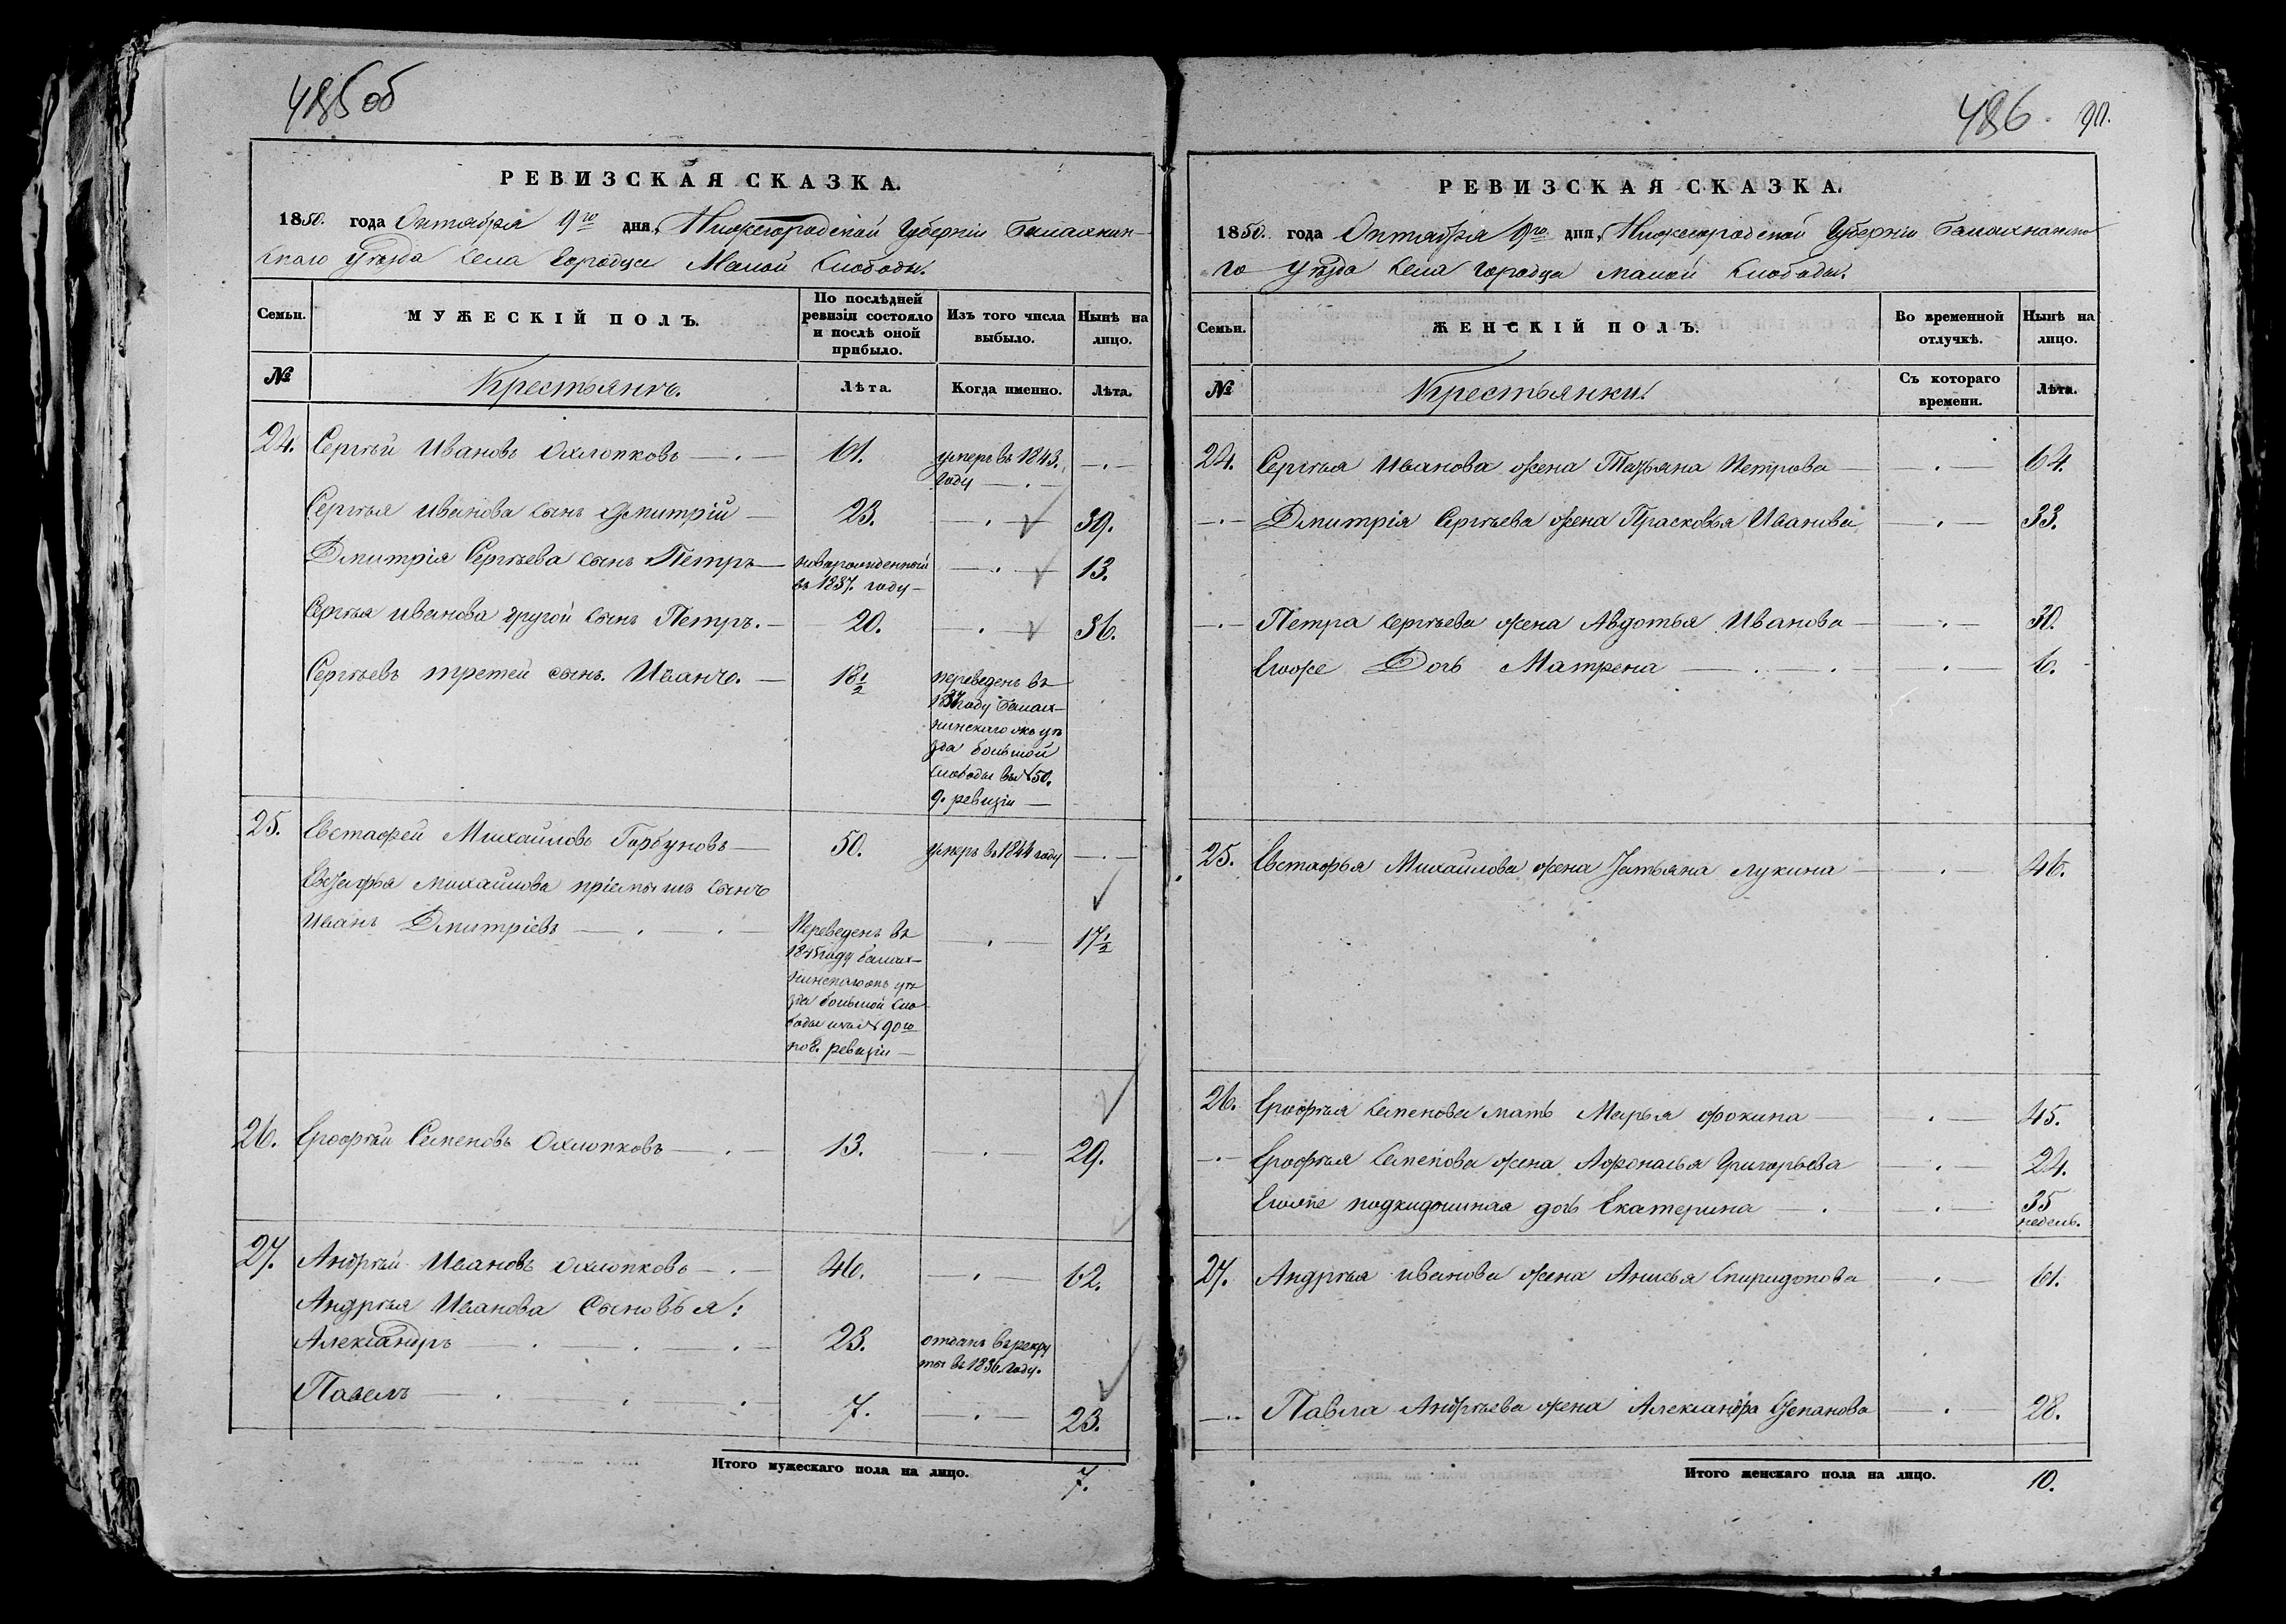 485об
РЕВИЗСКАЯ СКАЗКА.
1850. года Октября 9го дня, Нижегородской Губерніи Балахнин-
скаго Уѣзда Села Городца Малой Слободы.
Семьи.
МУЖЕСКІЙ ПОЛЪ.
По послѣдней ревизіи состояло и послѣ оной прибыло.
Изъ того числа выбыло.
Нынѣ на лицо.
№
Крестьянъ.
Лѣта.
Когда именно.
Лѣта.
24. Сергѣй Ивановъ Охлопковъ 61. умеръ въ 1843.
году
Сергѣя Иванова сынъ Дмитрій 23. 39.
Дмитрія Сергѣева сынъ Петръ новорожденный 13.
въ 1837. году
Сергѣя Иванова другой сынъ Петръ. 20. 36.
Сергѣевъ третей сынъ. Иванъ. 18½ переведенъ въ
году Балах-
нинскаго уѣ
зда большой
слободы въ № 50.
9. ревизіи
25. Евстафей Михайловъ Горбуновъ 50. умеръ въ 1844 году
Евстафья Михайлова пріемышъ сынъ
Иванъ Дмитріевъ Переведенъ въ 17½
году Балах-
нинскаго уѣ
зда большой сло
боды № 90го
ревизіи
26. Ерофѣй Семеновъ Охлопковъ 13. 29.
27. Андрѣй Ивановъ Охлопковъ 46. 62.
Андрѣя Иванова Сыновья:
Александръ 23. отданъ въ рекру
ты въ 1836 году.
Павелъ 7. 23.
Итого мужескаго пола на лицо. 7.
486.
РЕВИЗСКАЯ СКАЗКА.
1850. года Октября 9го дня, Нижегородской Губерніи Балахнинска
го Уѣзда Села Городца Малой Слободы.
Семьи.
ЖЕНСКІЙ ПОЛЪ.
Во временной отлучкѣ.
Нынѣ на лицо.
№
Крестьянки.
Съ котораго времени.
Лѣта.
24. Сергѣя Иванова жена Татьяна Петрова 64.
Дмитрія Сергѣева жена Прасковья Иванова 33.
Петра Сергѣева жена Авдотья Иванова 30.
Егоже Дочь Матрена 6.
25. Евстафья Михайлова жена Татьяна Лукина 46.
26. Ерофѣя Семенова мать Марья Фокина 45.
Ерофѣя Семенова жена Афонасья Григорьева 24.
Егоже подкидышная дочь Екатерина 35
недель.
27. Андрѣя Иванова жена Анисья Спиридонова 61.
Павла Андрѣева жена Александра Степанова 28.
Итого женскаго пола на лицо. 10.